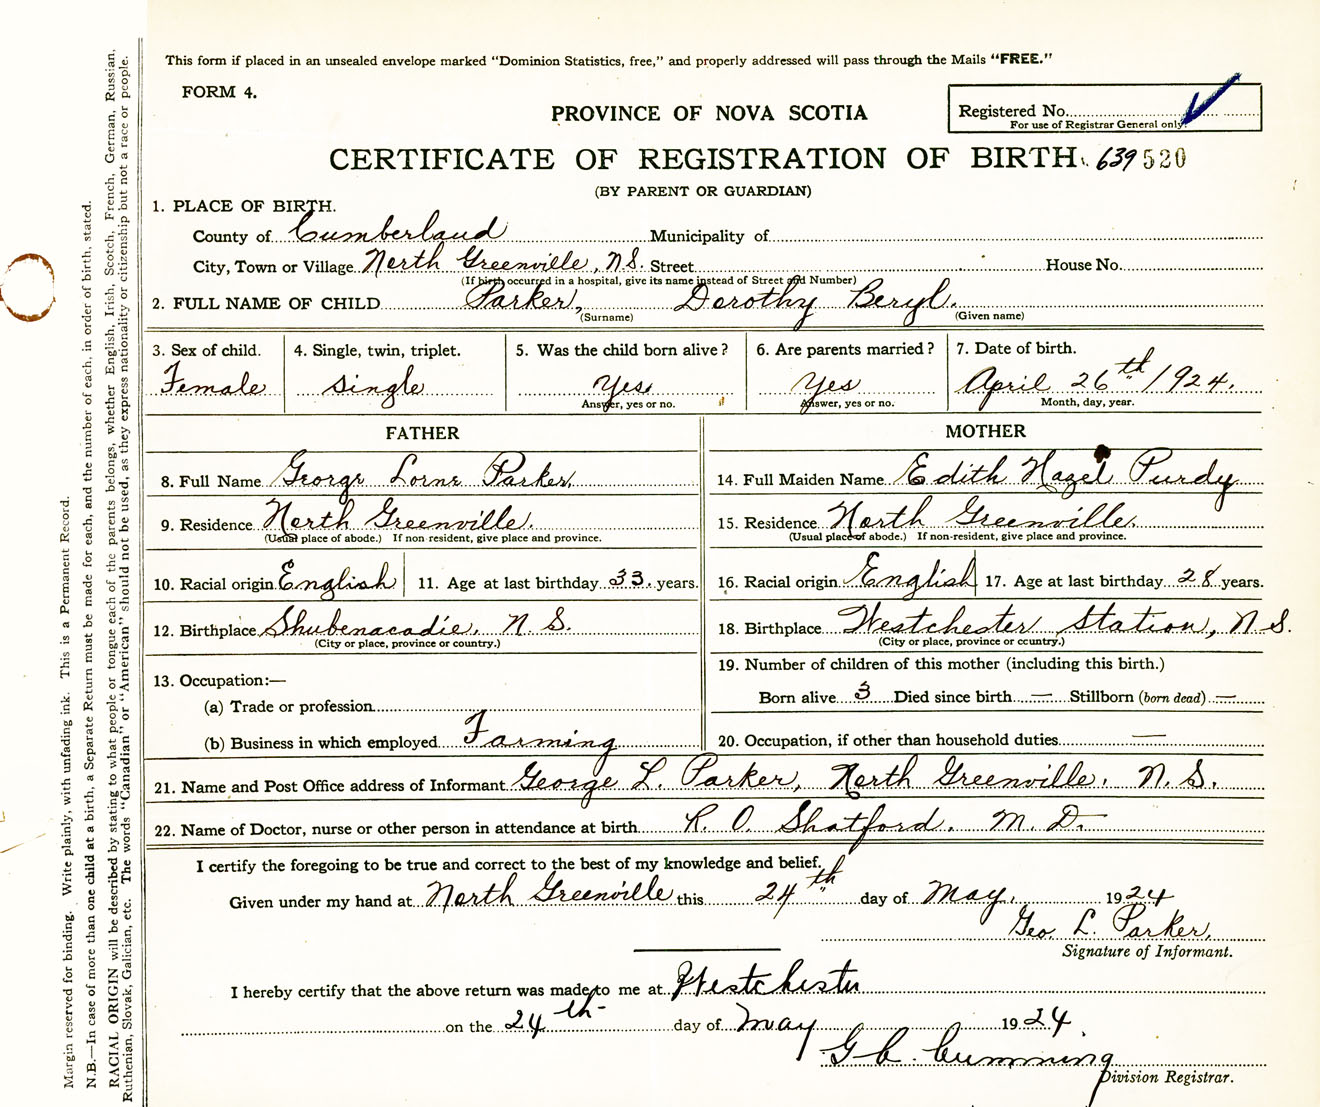 This form if placed in an unsealed envelope marked "Dominion Statistics, free," and properly addressed will pass through the Mails "FREE."
FORM 4.
PROVINCE OF NOVA SCOTIA
Registered No.
For use of Registrar General only.
CERTIFICATE OF REGISTRATION OF BIRTH 639520
(BY PARENT OR GUARDIAN)
1. PLACE OF BIRTH.
County of Cumberland Municipality of
City, Town or Village North Greenville, N.S. Street House No.
(If birth occurred in a hospital, give its name instead of Street and Number)
2. FULL NAME OF CHILD Parker, Dorothy Beryl.
(Surname) (Given name)
3. Sex of child. 4. Single, twin, triplet. 5. Was the child born alive? 6. Are parents married? 7. Date of birth.
Female single Yes Yes April 26th 1924.
Answer, yes or no. Answer, yes or no. Month, day, year.
FATHER MOTHER
8. Full Name George Lorne Parker 14. Full Maiden Name Edith Hazel Purdy
9. Residence North Greenville. 15. Residence North Greenville.
(Usual place of abode.) If non-resident, give place and province. (Usual place of abode.) If non-resident, give place and province.
10. Racial origin English 11. Age at last birthday 33. years. 16. Racial origin English 17. Age at last birthday 28 years.
12. Birthplace Shubenacadie, N.S. 18. Birthplace Westchester Station, N.S.
(City or place, province or country.) (City or place, province or country.)
13. Occupation:— 19. Number of children of this mother (including this birth.)
(a) Trade or profession Born alive 3 Died since birth — Stillborn (born dead) —
(b) Business in which employed Farming 20. Occupation, if other than household duties —
21. Name and Post Office address of Informant George L. Parker, North Greenville, N.S.
22. Name of Doctor, nurse or other person in attendance at birth R. O. Shatford. M.D.
I certify the foregoing to be true and correct to the best of my knowledge and belief.
Given under my hand at North Greenville this 24th day of May, 1924
Geo. L. Parker.
Signature of Informant.
I hereby certify that the above return was made to me at Westchester
on the 24th day of May 1924
G C Cumming
Division Registrar.
Margin reserved for binding. Write plainly, with unfading ink. This is a Permanent Record.
N.B.—In case of more than one child at a birth, a Separate Return must be made for each, and the number of each, in order of birth, stated.
RACIAL ORIGIN will be described by stating to what people or tongue each of the parents belongs, whether English, Irish, Scotch, French, German, Russian,
Ruthenian, Slovak, Galician, etc. The words "Canadian" or "American" should not be used, as they express nationality or citizenship but not a race or people.